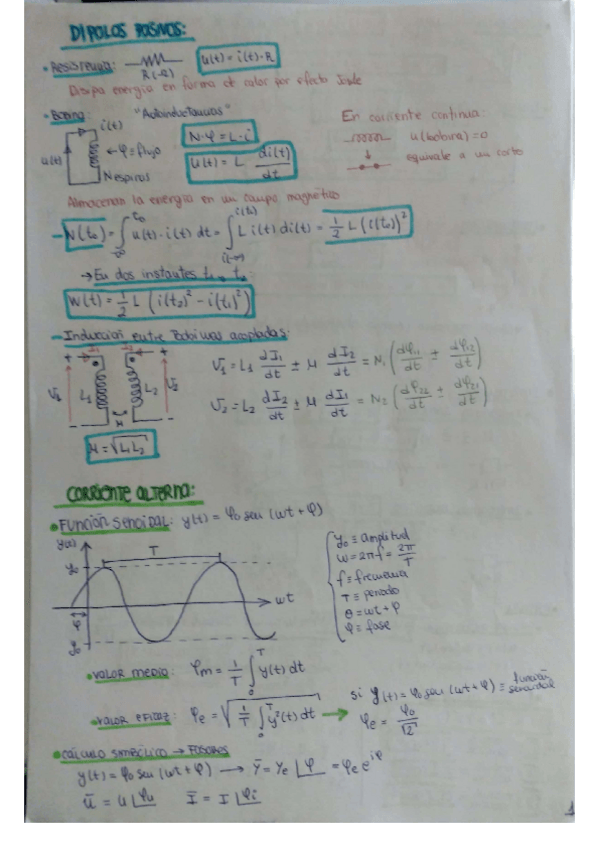 DIPOLOS PASIVOS:
• Resistencia: R(Ω) u(t) = i(t)·R
Disipa energía en forma de calor por efecto Joule
• Bobina: "Autoinductancias"
i(t)
u(t)
← φ = flujo
N espiras
N·φ = L·i
u(t) = L di(t)/dt
En corriente continua:
u(bobina) = 0
equivale a un corto
Almacenan la energía en un campo magnético
– W(t₀) = ∫ u(t)·i(t) dt = ∫ L i(t) di(t) = 1/2 L (i(t₀))²
→ En dos instantes t₁ t₂:
W(t) = 1/2 L (i(t₂)² - i(t₁)²)
– Inducción entre bobinas acopladas:
+ I₁ I₂ +
U₁ L₁ L₂ U₂
M
U₁ = L₁ dI₁/dt ± M dI₂/dt = N₁ (dφ₁₁/dt ± dφ₁₂/dt)
U₂ = L₂ dI₂/dt ± M dI₁/dt = N₂ (dφ₂₂/dt ± dφ₂₁/dt)
M = √L₁L₂
CORRIENTE ALTERNA:
• FUNCIÓN SENOIDAL: y(t) = φ₀ sen (ωt + φ)
y(t)
T
y₀
ωt
φ
y₀
y₀ ≡ amplitud
ω = 2πf = 2π/T
f ≡ frecuencia
T ≡ periodo
θ = ωt + φ
φ = fase
• VALOR MEDIO: φm = 1/T ∫₀ᵀ y(t) dt
• VALOR EFICAZ: φe = √(1/T ∫₀ᵀ y²(t) dt) →
si y(t) = φ₀ sen (ωt + φ) ≡ función senoidal
φe = φ₀/√2
• CÁLCULO SIMBÓLICO → FASORES
y(t) = φ₀ sen (ωt + φ) → Y̅ = Ye ⌊φ = φe eⁱᵠ
U̅ = U ⌊φu I̅ = I ⌊φi
1